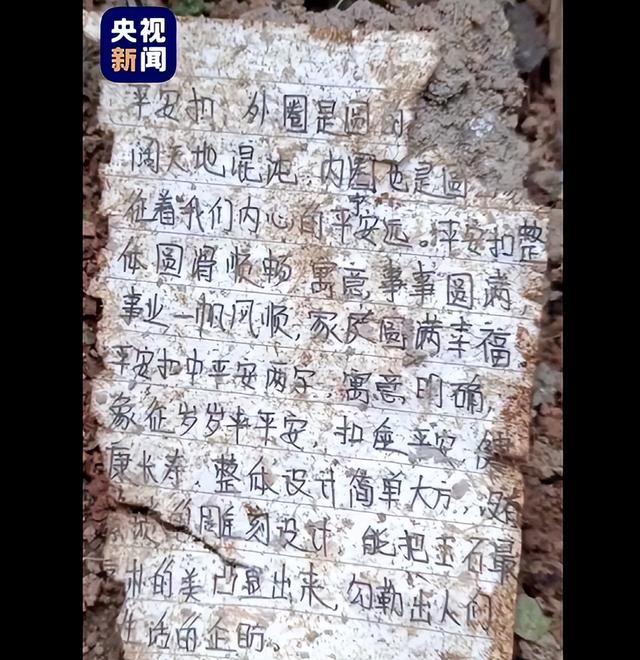 央视
新闻
平安扣,外圈是圆的
阔天地混沌,内圈也是圆
征着我们内心的平安
宁
远。平安扣整
体圆滑顺畅 寓意事事圆满,
事业一帆风顺,家庭圆满幸福。
平安扣中平安两字,寓意明确,
象征岁岁平安,扣住平安 健
康长寿。整体设计简单大方,没有
雕刻设计,能把玉石最
的美凸显出来,勾勒出人们
生活的企盼。